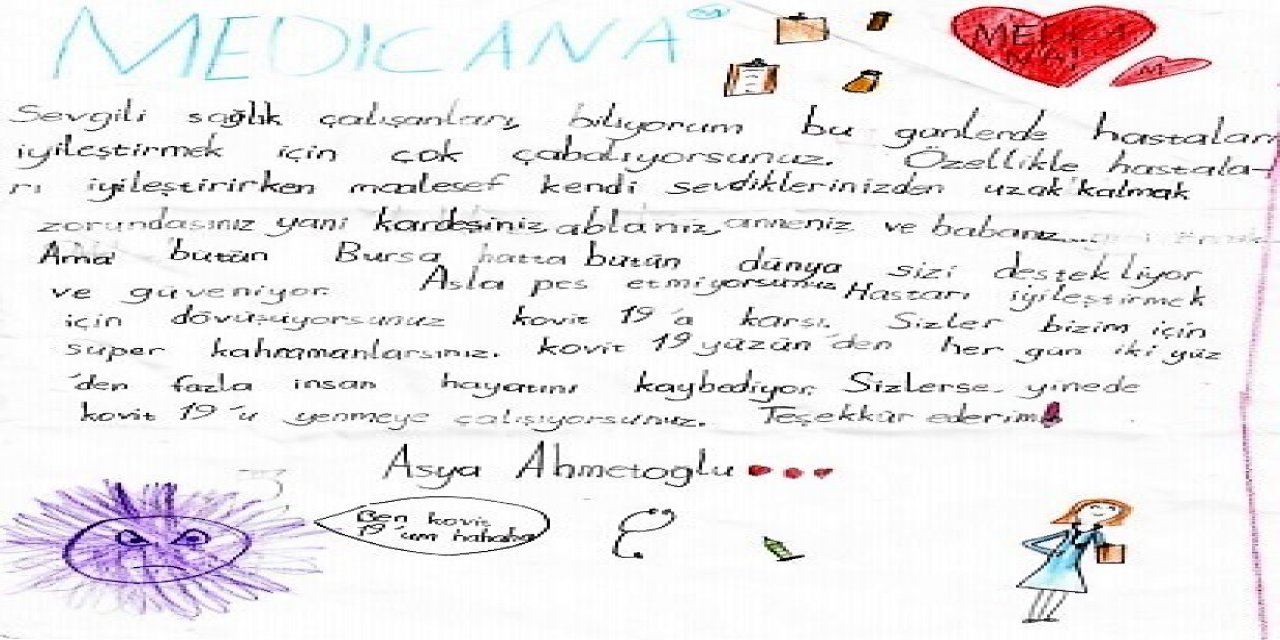 MEDICANA
Sevgili sağlık çalışanları, biliyorum bu günlerde hastaları
iyileştirmek için çok çabalıyorsunuz. Özellikle hastala-
rı iyileştirirken maalesef kendi sevdiklerinizden uzak kalmak
zorundasınız yani kardeşiniz, ablanız, anneniz ve babanız...
Ama bütün Bursa hatta bütün dünya sizi destekliyor
ve güveniyor. Asla pes etmiyorsunuz Hastarı iyileştirmek
için dövüşüyorsunuz kovit 19'a karşı. Sizler bizim için
süper kahramanlarsınız. kovit 19 yüzün'den her gün iki yüz
'den fazla insan hayatını kaybediyor. Sizlerse yinede
kovit 19'u yenmeye çalışıyorsunuz. Teşekkür ederim!
Asya Ahmetoglu
Ben kovit
19'um hahaha
M